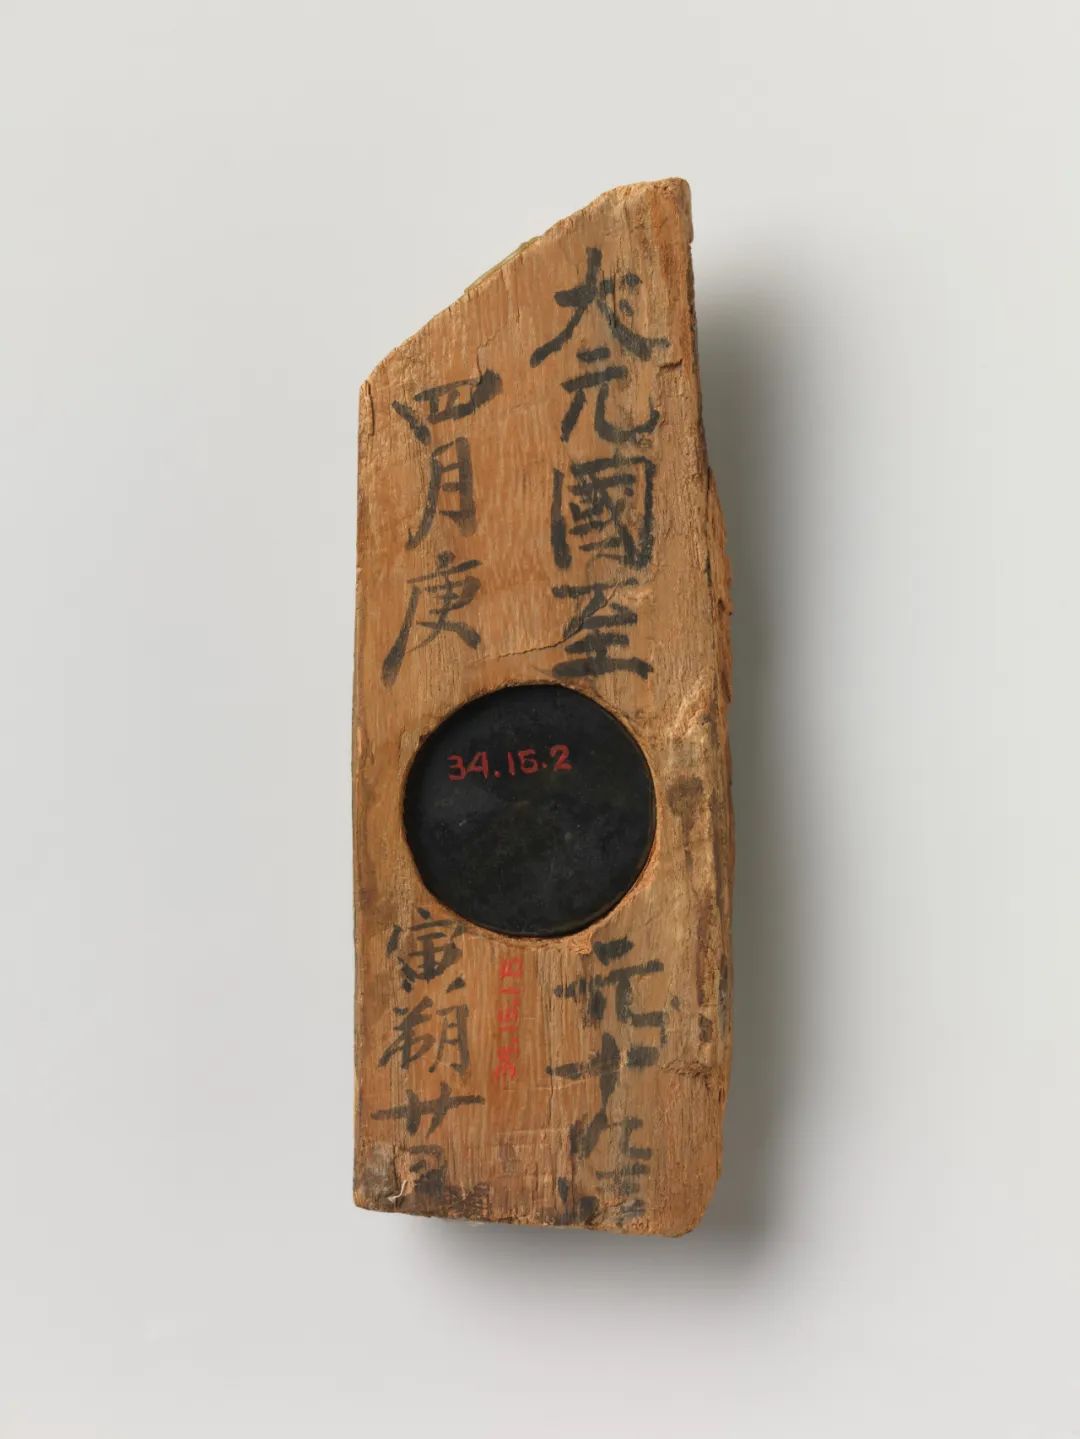 大元國至元十九年
四月庚寅朔廿
34.15.2
34.15.1b